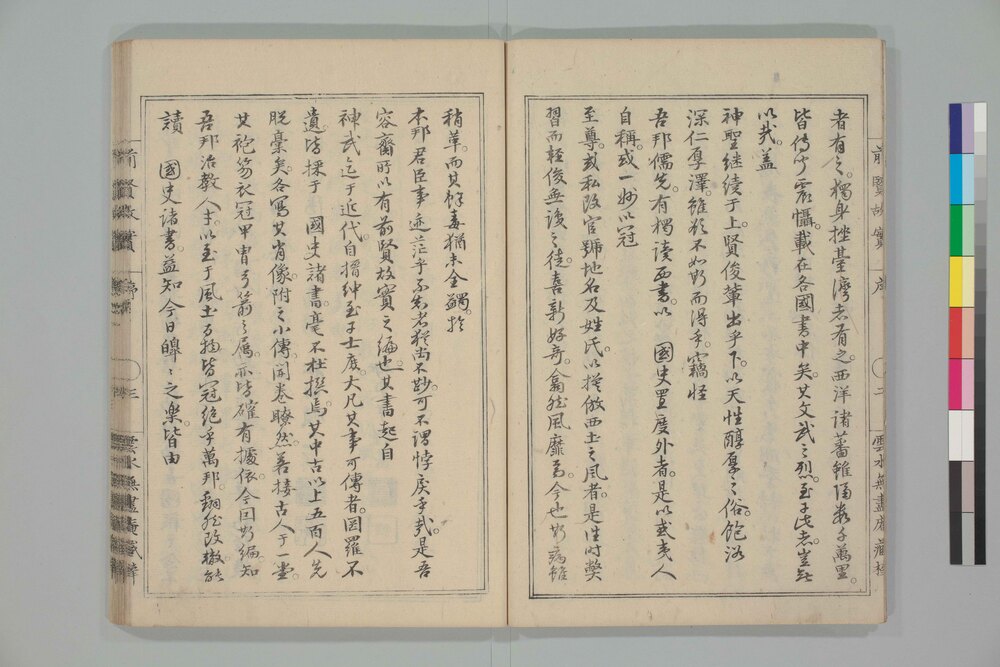 者有之。獨身挫臺灣者有之。西洋諸蕃雖隔數千萬里。
皆傳聞震懾。載在各國書中矣。其文武之烈。至于此者豈無
以哉。蓋
神聖継續于上。賢俊輩出乎下。以天性醇厚之俗。飽沐
深仁厚澤。雖欲不如斯而得乎。竊怪
吾邦儒先。有獨讀西書。以 國史置度外者。是以或夷人
自稱。或一姓以冠
至尊。或私改官號地名及姓氏。以摸倣西土之風者。是往時弊
習。而軽俊無識之徒。喜新好奇。翕然風靡焉。今也斯病雖
稍革。而其餘毒猶未全蠲。於
本邦君臣事迹。茫乎不知者猶尚不尠。可不謂悖戻乎哉。是吾
容齋所以有前賢故實之編也。其書起自
神武。迄于近代。自搢紳至于士庶。大凡其事可傳者。網羅不
遺。皆採于 國史諸書。毫不杜撰焉。其中古以上五百人先
脱稾矣。各寫其肖像。附之小傳。開卷瞭然。若接古人于一堂。
其袍笏衣冠甲冑弓箭之属。亦皆確有據依。今因斯編知
吾邦治教人才。以至于風土百物。皆冠絶乎萬邦。翻然改轍。能
讀 國史諸書。益知今日皥皥之樂。皆由
前賢故實 序
二
雲水無盡庵藏梓
前賢故實
三
雲水無盡庵藏梓